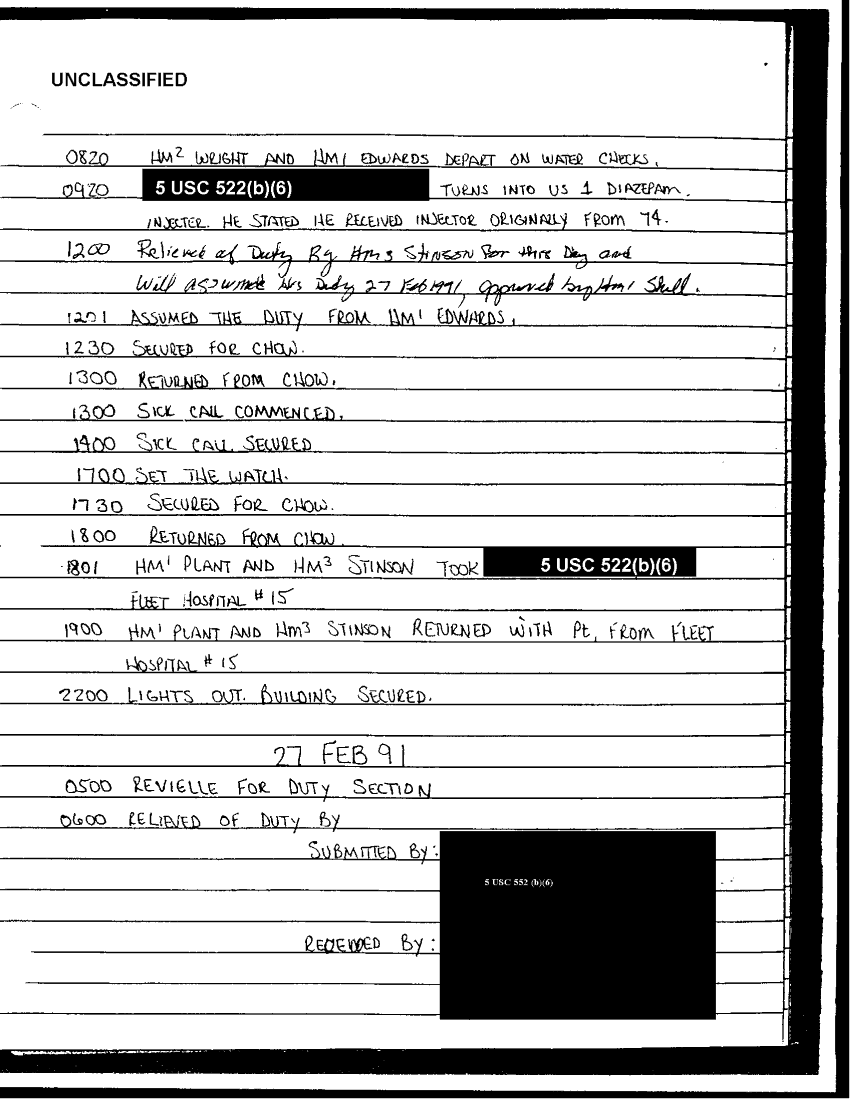 UNCLASSIFIED
0820 HM2 WRIGHT AND HM1 EDWARDS DEPART ON WATER CHECKS.
0920 5 USC 522(b)(6) TURNS INTO US 1 DIAZEPAM.
INJECTER. HE STATED HE RECEIVED INJECTOR ORIGINALLY FROM 74.
1200 Relieved of Duty By HM3 STINSON For this Day and
Will his Duty 27 Feb 1991, approved by HM1 Skell.
1201 ASSUMED THE DUTY FROM HM1 EDWARDS.
1230 SECURED FOR CHOW.
1300 RETURNED FROM CHOW.
1300 SICK CALL COMMENCED.
1400 SICK CALL SECURED
1700 SET THE WATCH.
1730 SECURED FOR CHOW.
1800 RETURNED FROM CHOW.
1801 HM1 PLANT AND HM3 STINSON TOOK 5 USC 522(b)(6)
FLEET HOSPITAL # 15
1900 HM1 PLANT AND HM3 STINSON RETURNED WITH Pt, FROM FLEET
HOSPITAL # 15
2200 LIGHTS OUT. BUILDING SECURED.
27 FEB 91
0500 REVIELLE FOR DUTY SECTION
0600 RELIEVED OF DUTY BY
SUBMITTED BY:
5 USC 552 (b)(6)
REVIEWED BY: